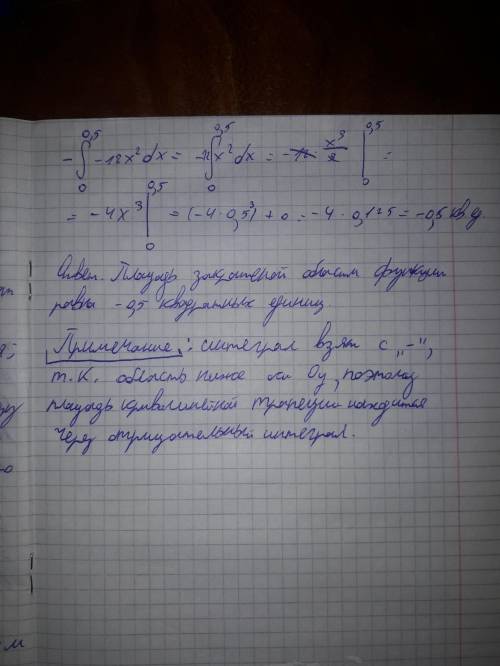 - ∫₀^0,5 -12x² dx = -12 ∫₀^0,5 x² dx = -12 · x³/3 |₀^0,5 =
= -4x³ |₀^0,5 = (-4 · 0,5³) + 0 = -4 · 0,125 = -0,5 кв.ед.
Ответ. Площадь закрашеной области функции
равна -0,5 квадратных единиц
Примечание: интеграл взят с „-",
т.к. область ниже оси Oy, поэтому
площадь криволинейной трапеции находится
через отрицательный интеграл.